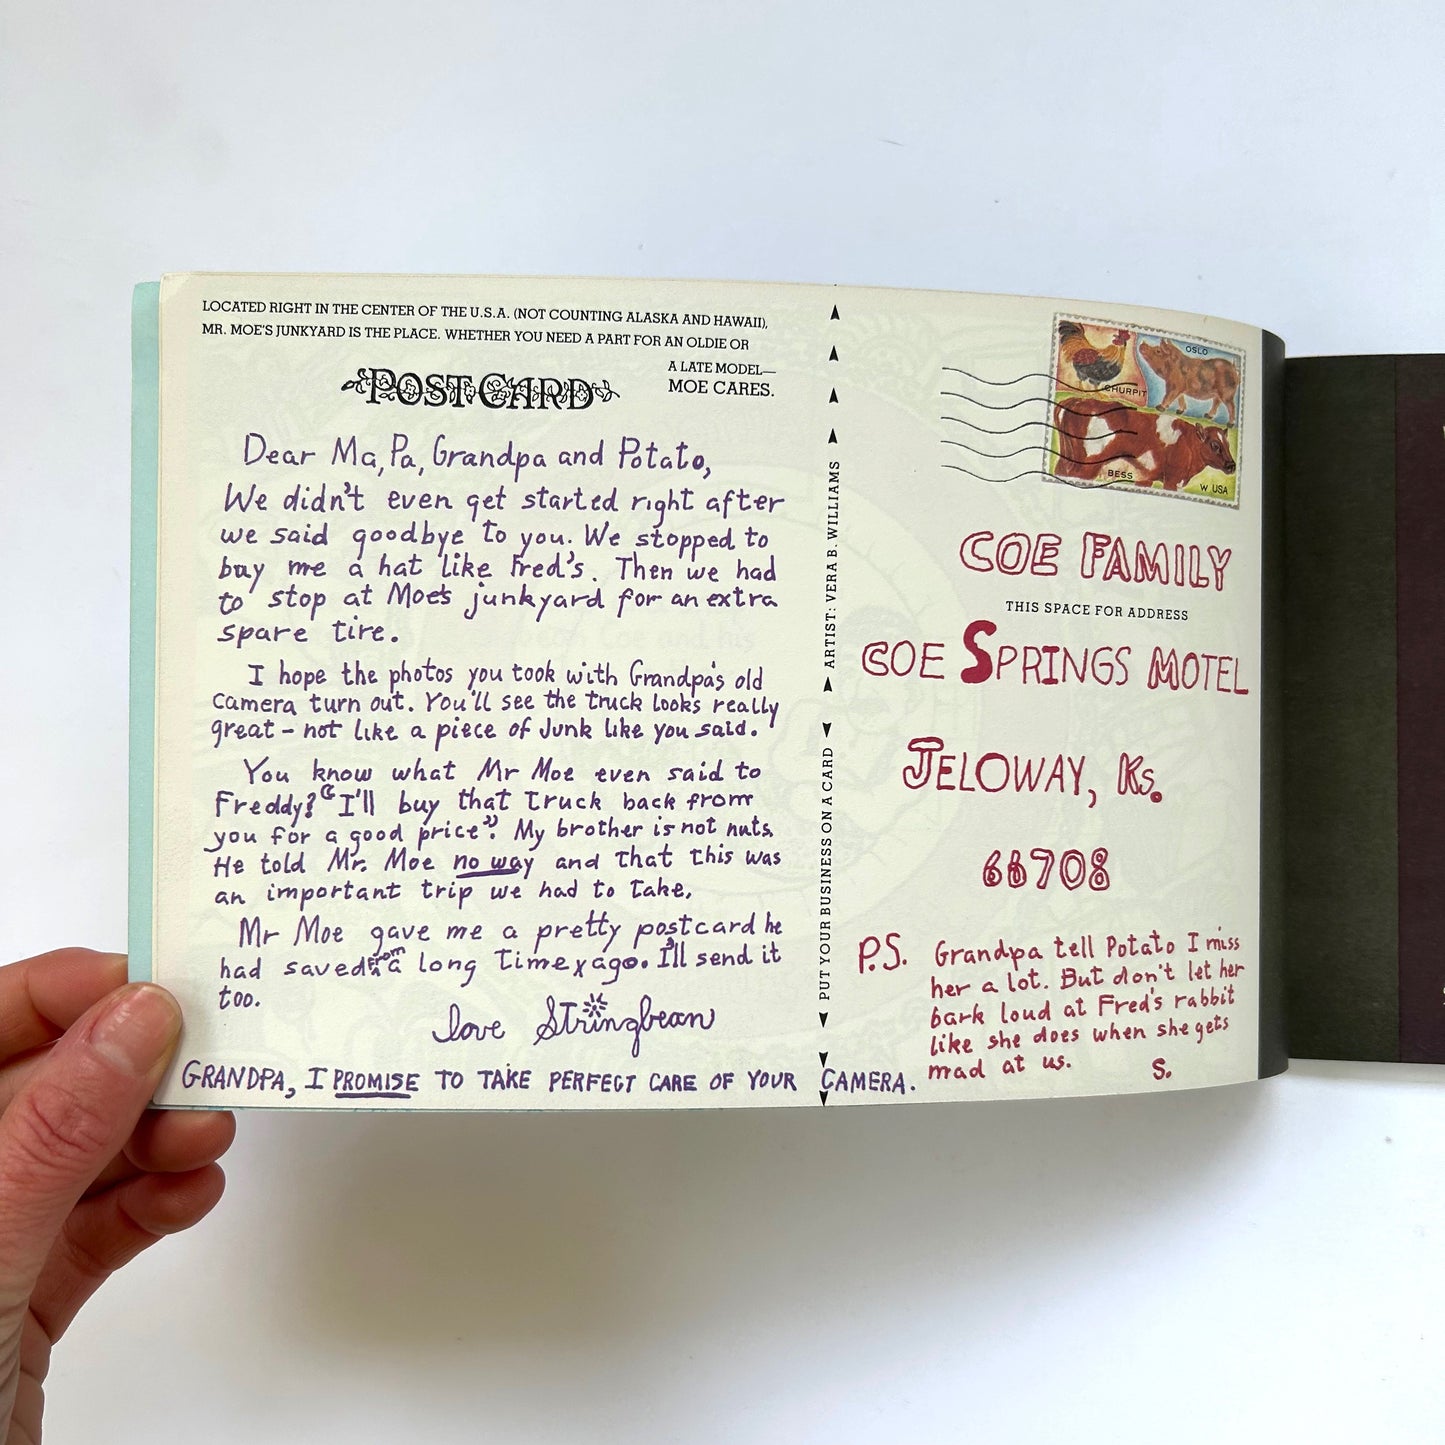 LOCATED RIGHT IN THE CENTER OF THE U.S.A. (NOT COUNTING ALASKA AND HAWAII),
MR. MOE'S JUNKYARD IS THE PLACE. WHETHER YOU NEED A PART FOR AN OLDIE OR
A LATE MODEL—
MOE CARES.
POST CARD
Dear Ma, Pa, Grandpa and Potato,
We didn't even get started right after
we said goodbye to you. We stopped to
buy me a hat like Fred's. Then we had
to stop at Moe's junkyard for an extra
spare tire.
I hope the photos you took with Grandpa's old
camera turn out. You'll see the truck looks really
great – not like a piece of junk like you said.
You know what Mr Moe even said to
Freddy? "I'll buy that truck back from
you for a good price". My brother is not nuts.
He told Mr. Moe no way and that this was
an important trip we had to take.
Mr Moe gave me a pretty postcard he
had saved from a long time ago. I'll send it
too.
love Stringbean
GRANDPA, I PROMISE TO TAKE PERFECT CARE OF YOUR CAMERA.
PUT YOUR BUSINESS ON A CARD
ARTIST: VERA B. WILLIAMS
OSLO
CHURPIT
BESS
W USA
COE FAMILY
THIS SPACE FOR ADDRESS
COE SPRINGS MOTEL
JELOWAY, Ks.
66708
P.S. Grandpa tell Potato I miss
her a lot. But don't let her
bark loud at Fred's rabbit
like she does when she gets
mad at us. S.